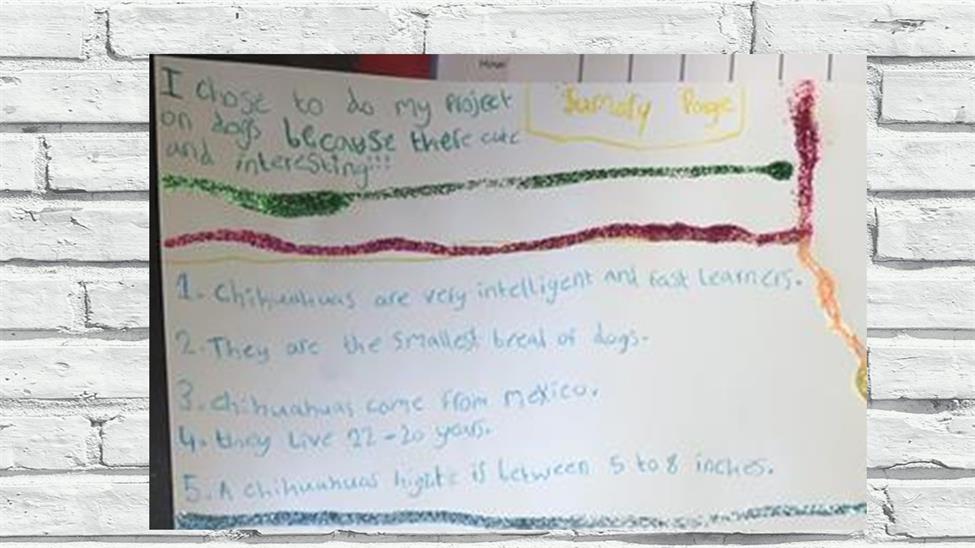 I chose to do my project
on dogs because there cute
and interesting!!!
Sumary Page
1. Chihuahuas are very intelligent and fast learners.
2. They are the smallest breal of dogs.
3. Chihuahuas come from mexico.
4. they live 12-20 years.
5. A chihuahuas highte is between 5 to 8 inches.